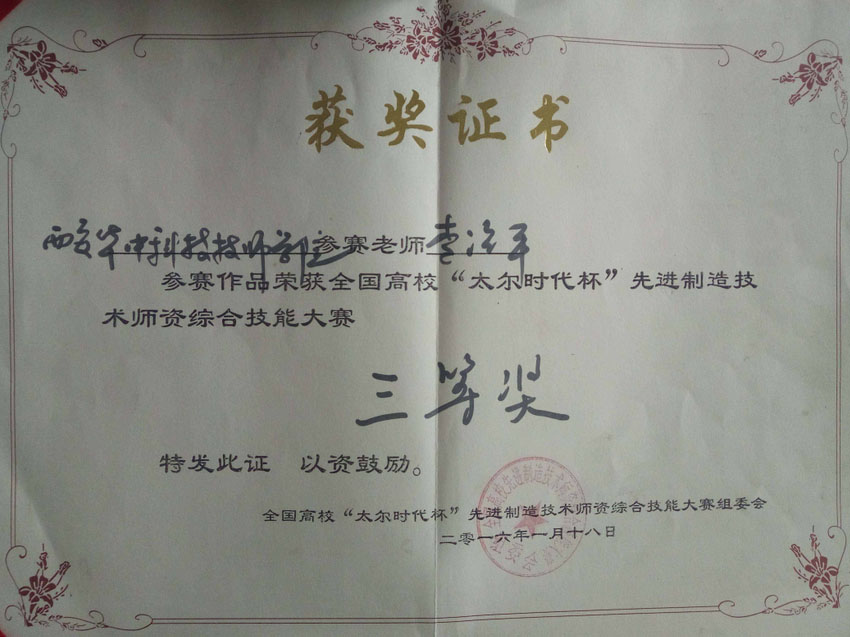 获奖证书
西安华中科技技师学院参赛老师李治平
参赛作品荣获全国高校“太尔时代杯”先进制造技
术师资综合技能大赛
三等奖
特发此证 以资鼓励。
全国高校“太尔时代杯”先进制造技术师资综合技能大赛组委会
二零一六年一月十八日